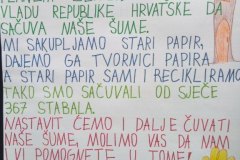 VLADU REPUBLIKE HRVATSKE DA
SAČUVA NAŠE ŠUME.
MI SAKUPLJAMO STARI PAPIR,
DAJEMO GA TVORNICI PAPIRA
A STARI PAPIR SAMI I RECIKLIRAMO.
TAKO SMO SAČUVALI OD SJEČE
367 STABALA.
NASTAVIT ĆEMO I DALJE ČUVATI
NAŠE ŠUME, MOLIMO VAS DA NAM
I VI POMOGNETE U TOME!